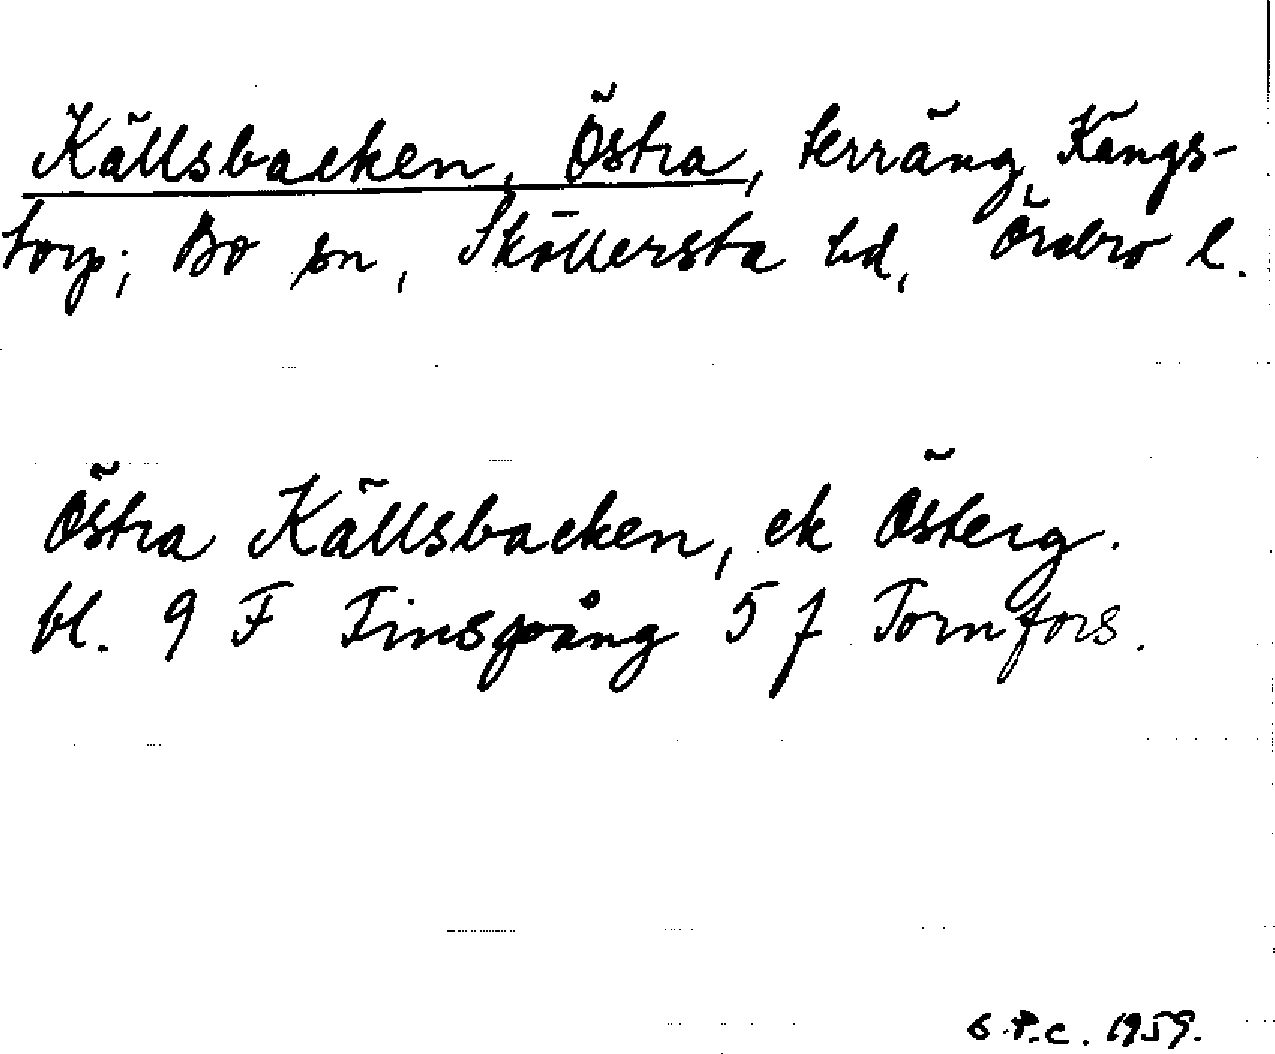 Källsbacken, Östra, terräng, Kängs-
torp; Bo sn, Sköllersta hd, Örebro l.
Östra Källsbacken, ek Österg.
bl. 9 F Finspång 5 f Tornfors.
1959.